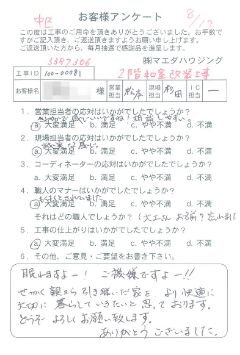 お客様アンケート
この度は工事のご用命を頂きありがとうございました。お手数で
すがご記入頂き、ご返送頂きますようお願い申し上げます。
ご返送頂いた方から、毎月抽選で感謝品を進呈します。
3347306 ㈱マエダハウジング
工事ID 100-00081 2階和室改装工事
お客様名 様 営業担当 現場担当 杉田 IC担当
1. 営業担当者の応対はいかがでしたでしょうか?
a. 大変満足 b. 満足 c. やや不満 d. 不満
2. 現場担当者の応対はいかがでしたでしょうか?
a. 大変満足 b. 満足 c. やや不満 d. 不満
3. コーディネーターの応対はいかがでしたでしょうか?
a. 大変満足 b. 満足 c. やや不満 d. 不満
4. 職人のマナーはいかがでしたでしょうか?
a. 大変満足 b. 満足 c. やや不満 d. 不満
それはどの職人でしょうか? (大工さん
5. 工事の仕上がりはいかがでしたでしょうか?
a. 大変満足 b. 満足 c. やや不満 d. 不満
6. その他、ご意見・ご要望をお書き下さい。
せっかく親から引き継いだ家を より快適に
大切に 暮らしていきたいと思っております。
どうぞ よろしくお願い致します。
ありがとうございました。